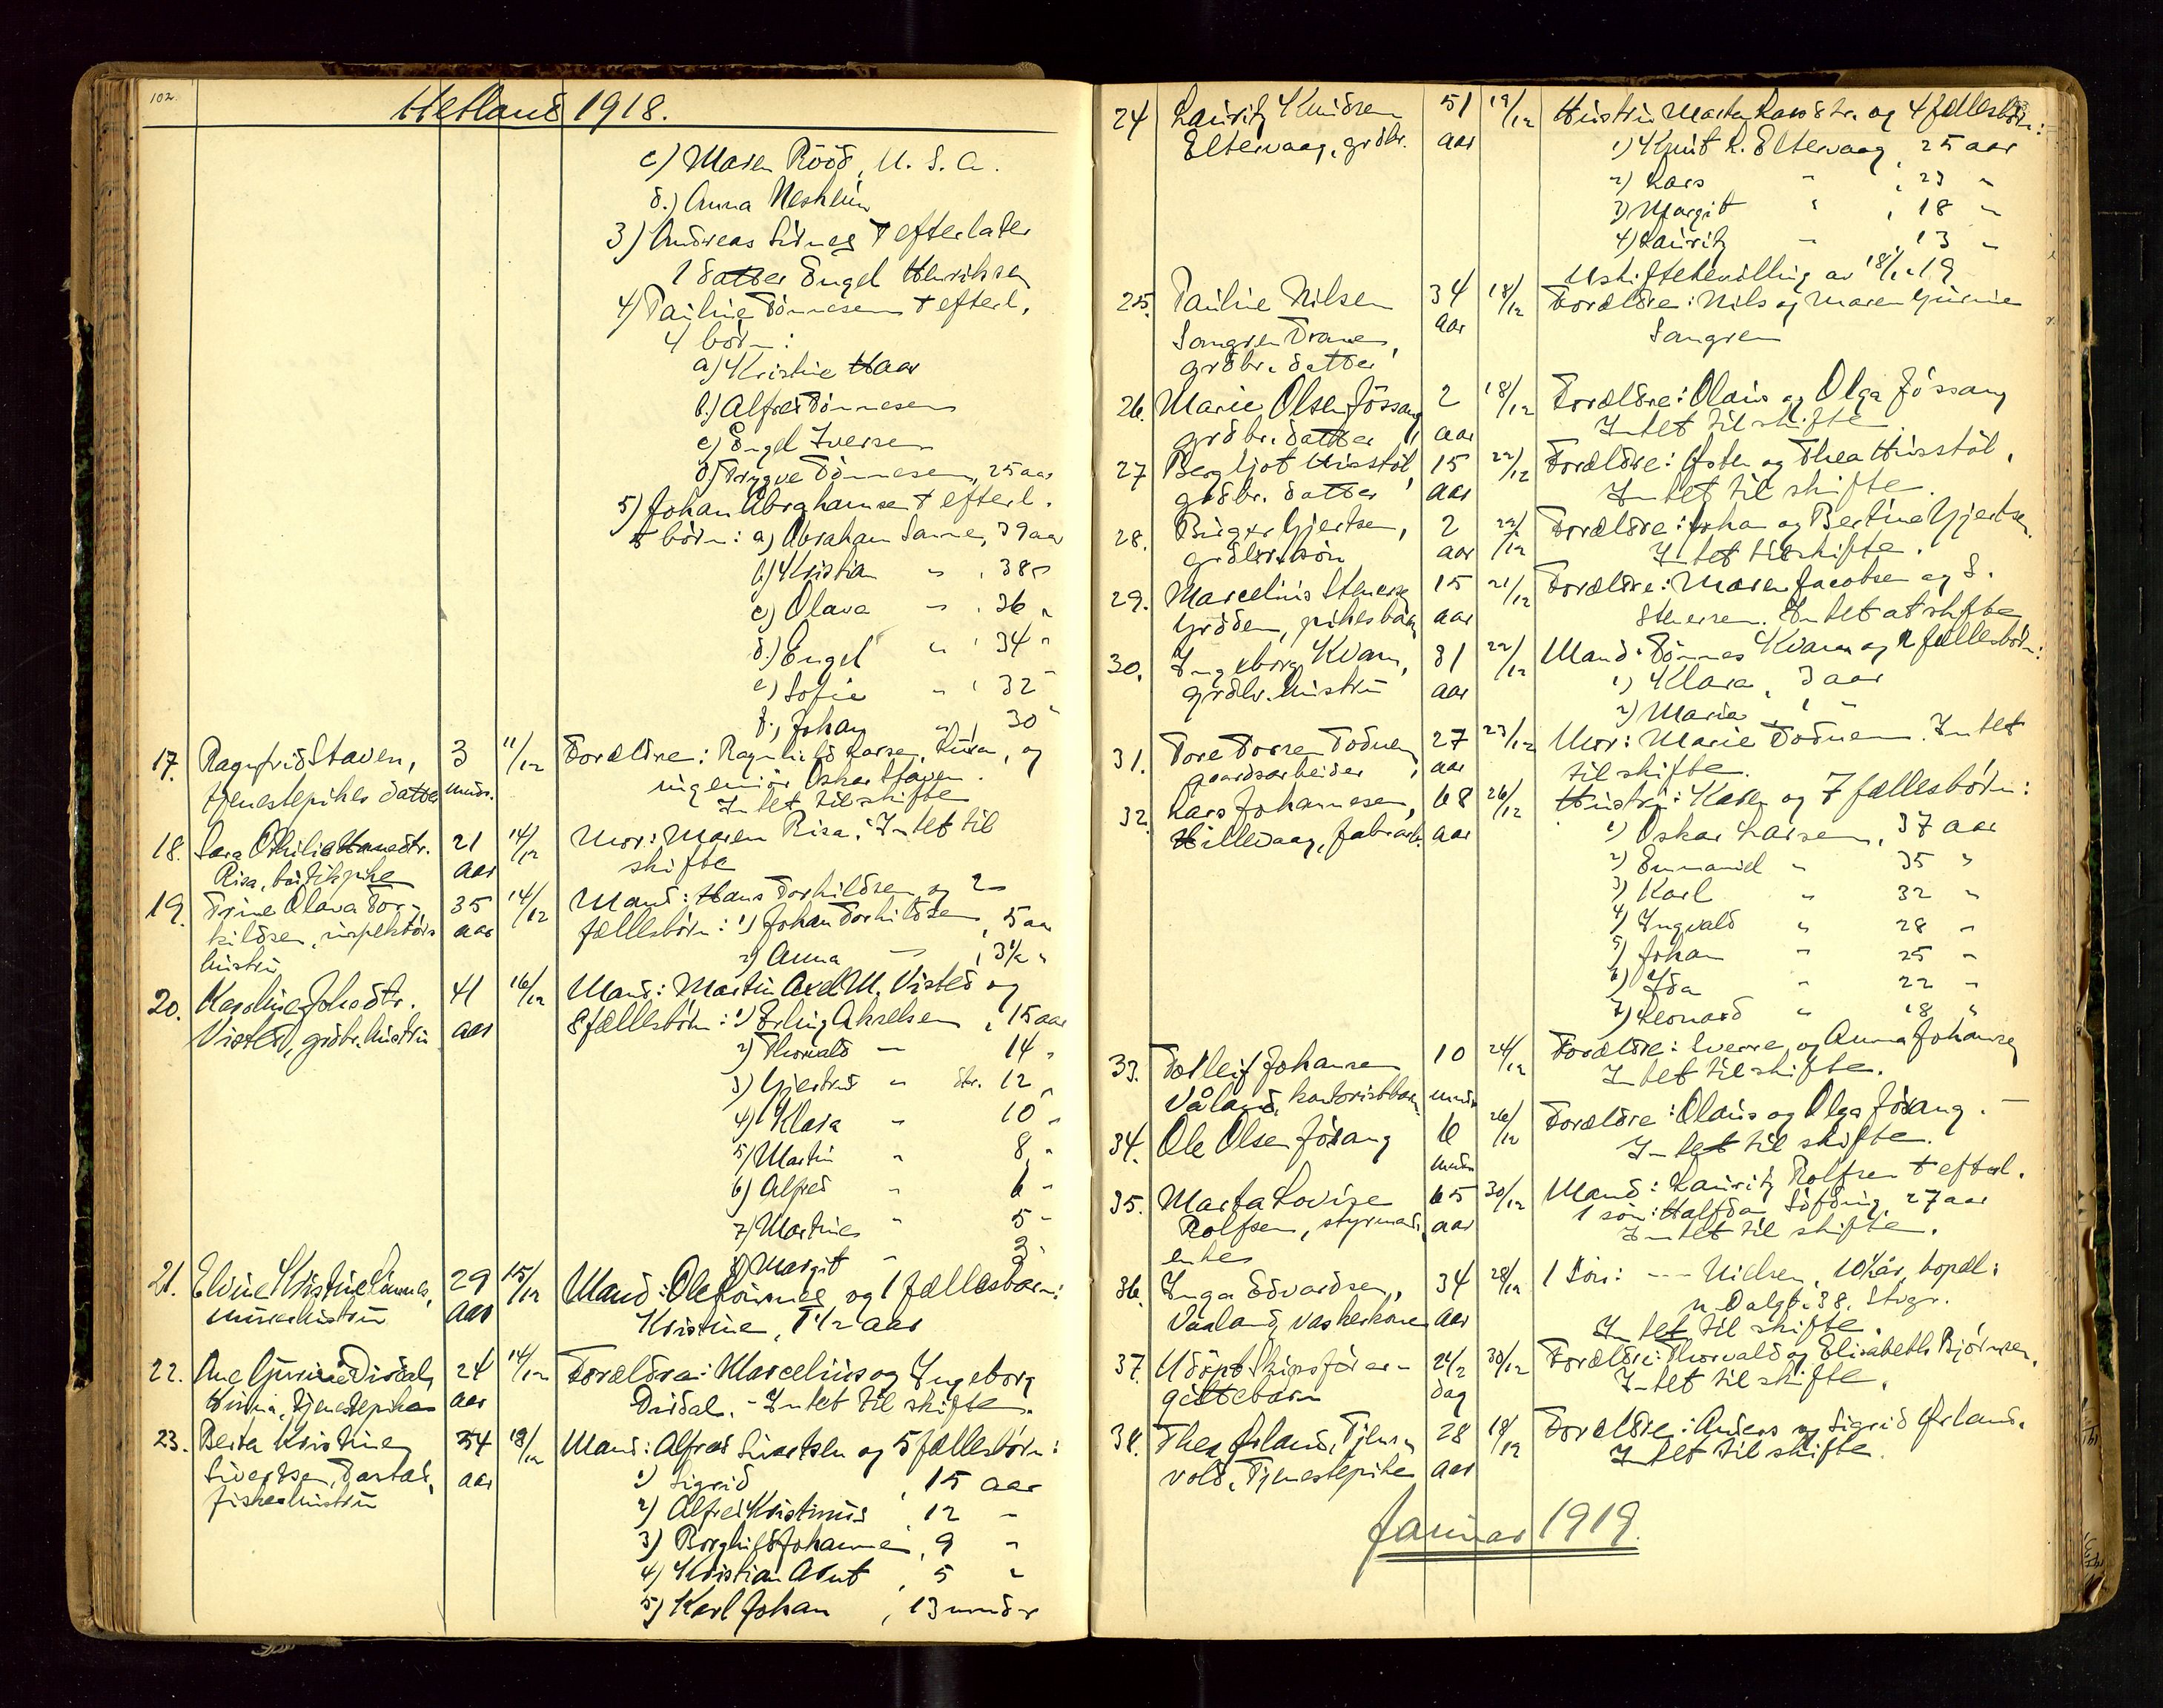 102.
Hetland 1918.
c) Maren Rööd, U. S. A.
d.) Anna
3) Andreas † efterlater
1 datter Engel Henriksen
4) Pauline Tönnesen † efterl.
4 börn:
a) Kristine Haar
b.) Alfred Tönnesen
c) Engel Iversen
d.) Trygve Tönnesen, 25 aar
5) Johan Abrahamsen † efterl.
börn: a) Abraham Sanne, 39 aar
b) Kristian " , 38 "
c) Olava " , 36 "
d.) Engel " , 34 "
e) Sofie " , 32 "
f.) Johan " , 30 "
17. Ragnfrid Staven, 3 11/12 Forældre: Ragnhild Larsen, og
tjenestepikes datter mndr. ingeniör Oskar Staven.
Intet til skifte
18. Sara Othilie Hansdtr. 21 14/12 Mor: Maren Risa. Intet til
Risa, butikpike aar skifte
19. Trine Olava Tor- 35 14/12 Mand: Hans Torkildsen og 2
kildsen, inspektörs aar fællesbörn: 1) Johan Torkildsen, 5 aar
hustru 2) Anna " , 3 1/2 "
20. Karoline Johsdtr. 41 16/12 Mand: Martin Axel M. Visted og
Visted, grdbr. hustru aar 8 fællesbörn: 1) Erling Akselsen, 15 aar
2) Thorvald " 14 "
3) Gjertrud " dtr. 12 "
4) Klara " 10 "
5) Martin " 8 "
6) Alfred " 6 "
7) Martines " 5 "
8) Margit " 3 "
21. Elvine Kristine 29 15/12 Mand: Ole og 1 fællesbarn:
murerhustru aar Kristine, 1 1/2 aar
22. Ane Gurine Dirdal, 24 14/12 Forældre: Marcelius og Ingeborg
Hinna, tjenestepike aar Dirdal. - Intet til skifte.
23. Berta Kristine 34 18/12 Mand: Alfred Sivertsen og 5 fællesbörn:
Sivertsen, aar 1) Sigrid , 15 aar
fiskerhustru 2) Alfred Kristinus , 12 "
3) Borghild Johanne , 9 "
4) Kristian Arnt , 5 "
5) Karl Johan , 13 mndr
24 Lauritz Knudsen 51 19/12 Hustru Marta Larsdtr. og 4 fællesbörn:
Eltervaag, grdbr. aar 1) Knut L. Eltervaag, 25 aar
2) Lars " , 23 "
3) Margit " , 18 "
4) Lauritz " , 13 "
Uskiftebevilling av 18/1 19
25. Pauline Nilsen 34 18/12 Forældre: Nils og Maren Gurine
Sangren Tranen, aar Sangren
grdbr. datter
26. Marie Olsen Jössang 2 18/12 Forældre: Olaus og Olga Jössang
grdbr. datter aar Intet til skifte
27 Bergljot Husstöl, 15 22/12 Forældre: Osten og Thea Husstöl,
grdbr. datter aar Intet til skifte.
28. Birger Gjertsen, 2 22/12 Forældre: Johan og Bertine Gjertsen
grdbr. sön aar Intet til skifte.
29. Marcelius Stenersen 15 21/12 Forældre: Maren Jacobsen og S.
Gröden, pikesbarn aar Stenersen. Intet at skifte
30. Ingeborg Kvam, 31 22/12 Mand: Tönnes Kvam og 2 fællesbörn:
grdbr. hustru aar 1) Klara, 3 aar
2) Maria, 1 "
31. Tore Torsen Todnem 27 23/12 Mor: Marie Todnem. Intet
gaardsarbeider aar til skifte.
32. Lars Johannesen, 68 26/12 Hustru: Karen og 7 fællesbörn:
Hillevaag, fabrarb. aar 1) Oskar Larsen, 37 aar
2) Emmanuel " 35 "
3) Karl " 32 "
4) Ingvald " 28 "
5) Johan " 25 "
6) Ida " 22 "
7) Leonard " 18 "
33. Totleif Johansen 10 24/12 Forældre: Sverre og Anna Johansen
Våland, kontoristbarn mndr Intet til skifte.
34. Ole Olsen Jösang 6 26/12 Forældre: Olaus og Olga Jösang. —
mndr Intet til skifte.
35. Marta Lovise 65 30/12 Mand: Lauritz Rolfsen † efterl.
Rolfsen, styrmands aar 1 sön: Halfdan 27 aar
enke Intet til skifte.
36. Inga Edvardsen, 34 28/12 1 Sön: --- Nielsen, 10 1/2 år, bopæl:
Vaaland, vaskekone aar n. Dalgt. 38. Stvgr.
Intet til skifte.
37. Udöpt Skipsförer- 24 1/2 30/12 Forældre: Thorvald og Elisabeth Björnsen,
giftebarn dag Intet til skifte.
38. Thea Örland, Tjens- 28 18/12 Forældre: Anders og Sigrid Örland.
vold, Tjenestepike aar Intet til skifte.
Januar 1919.